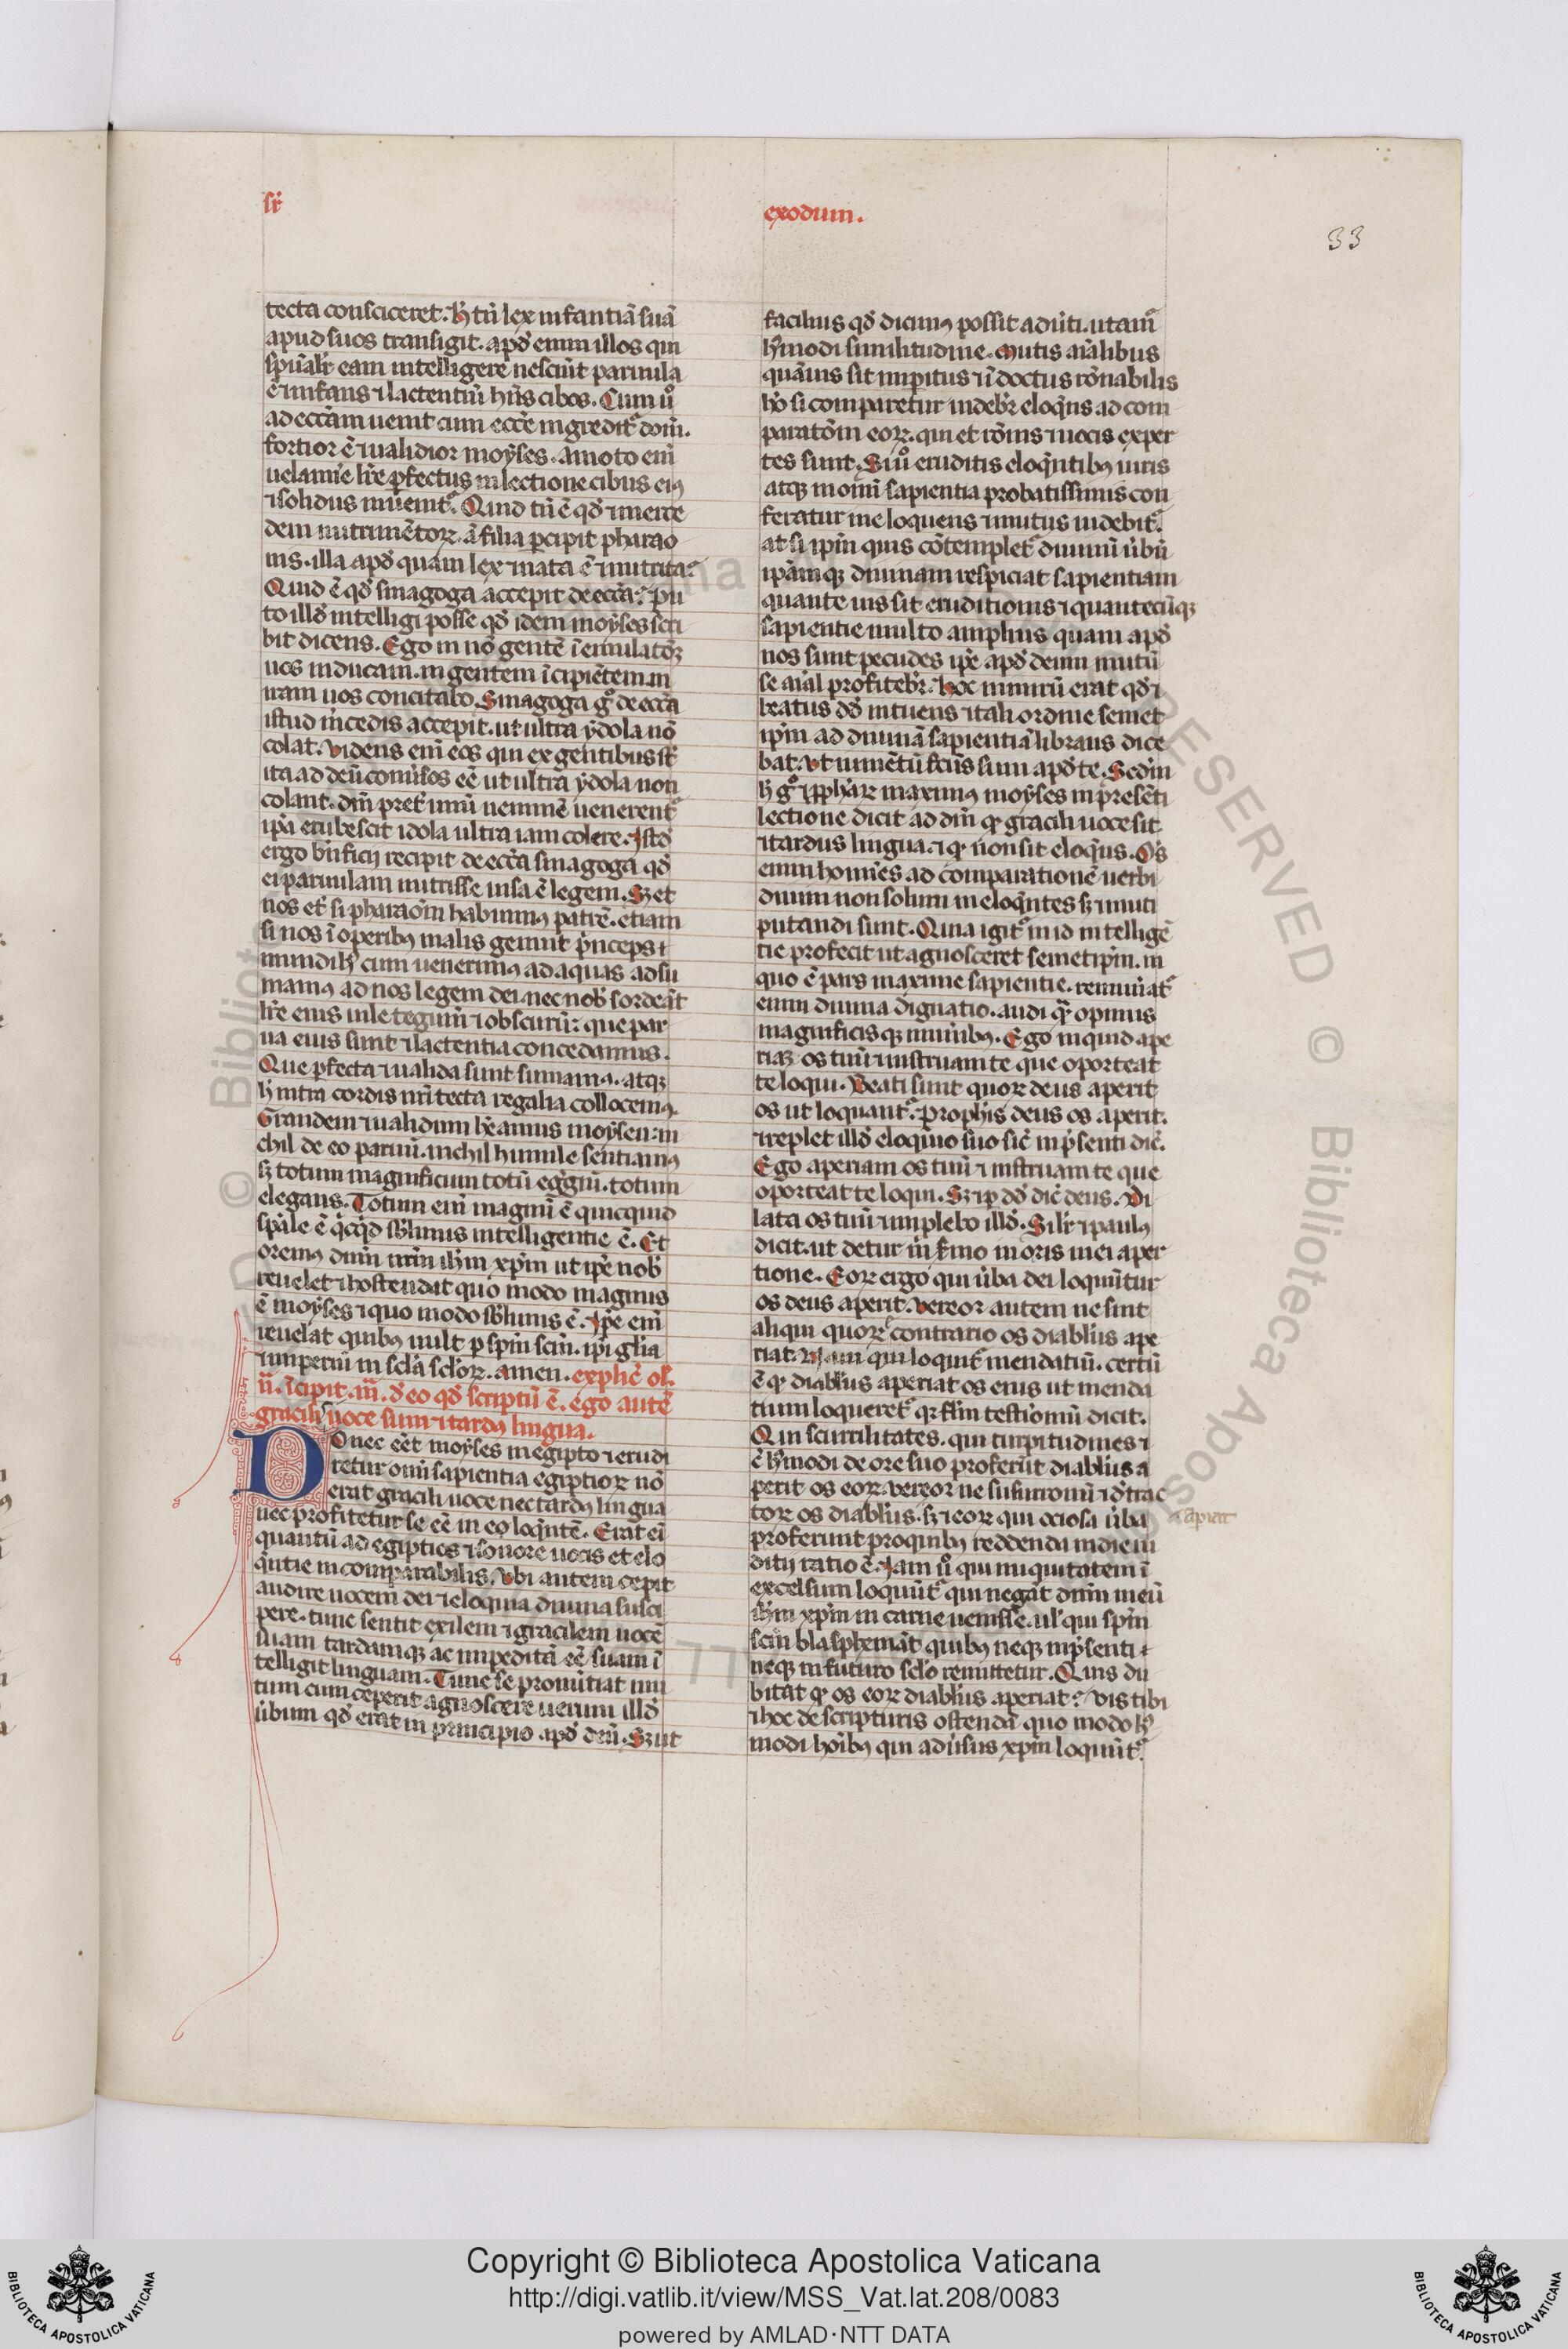 sr̄
exodum.
33
tecta consciceret. h̄ tn̄ lex infantiā suā
apud suos transigit. apd̕ enim illos qui
sp̄ualr̄ eam intelligere nesciūt paruula
ē ⁊ infans ⁊ lactentiū hn̄s cibos. Cum u͛o
ad ecc̄am uenit cum ecc̄e ingredit᷑ dom̄.
fortior ē ⁊ ualidior moẏses. amoto eni̅
uelamīe lr̄e ꝑfectus in lectione cibus eiꝰ
⁊ solidus īuenit᷑. Quid tn̄ ē qd̕ ⁊ merce
dem nutrimētoꝝ. a filia ꝑcipit pharao
nis. illa apd̕ quam lex ⁊ nata ē ⁊ nutrita?
Quid ē qd̕ sinagoga accepit de ecc̄a? pu
to illd̕ intelligi posse qd̕ idem moẏses sc̕i
bit dicens. Ego in nō gentē ī emulatōꝫ
uos inducam. in gentem īsipiētem. in
iram uos concitabo. Sinagoga g͛o de ecc̄a
istud m̄cedis accepit. ut ultra ẏdola nō
colat. Videns eni̅ eos qui ex gentibus st̄
ita ad deū cōuersos eē ut ultra ẏdola non
colant. dm̄ pret᷑ unū neminē uenerent᷑
ip̄a erubescit idola ultra iam colere. Istd̕
ergo bn̄ficij recipit de ecc̄a sinagoga qd̕
ei paruulam nutrisse uisa ē legem. Sꝫ et
nos et᷑ si pharaōm habuimꝰ patrē. etiam
si nos ī operibꝰ malis genuit p̄nceps ⁊
mundi hꝰ cum uenerimꝰ ad aquas adsu
mamꝰ ad nos legem dei. nec nob̕ sordeāt
lr̄e eius uile tegum̄ ⁊ obscurū: que par
ua eius sunt ⁊ lactentia concedamus.
Que ꝑfecta ⁊ ualida sunt sumamꝰ. atqꝫ
h̄ intra cordis nr̄i tecta regalia collocemꝰ.
Grandem ⁊ ualidum hr̄amus moẏsen: ni
chil de eo paruū. nichil humile sentiamꝰ
sꝫ totum magnificum totū eg͛giū. totum
elegans. Totum eni̅ magnū ē quicquid
sp̄ale ē q̄cq̄d sb̕limis intelligentie ē. Et
oremꝰ dnm̄ nrm̄ ih̄m xp̄m ut ip̄e nob̕
reuelet ⁊ hostendat quo modo magnus
ē moẏses ⁊ quo modo sb̕limis ē. Ip̄e eni̅
reuelat quibꝰ uult p spm̄ scm̄. ip̄i gl̄ia
⁊ imperiū in scl̄a scl̄oꝝ. amen. explic̄ ol̕.
ij̄. īcipit. iij̄. d̕ eo qd̕ scriptū ē. ego autē
gracili uoce sum ⁊ tardꝰ lingua.
Donec eēt moẏses in egipto ⁊ erudi
retur omi̅ sapientia egiptioꝝ nō
erat gracili uoce nec tardꝰ lingua
nec profitetur se eē in eo loq̄ntē. Erat ei̅
quantū ad egiptios ⁊ sonore uocis et elo
q̄ntie incomparabilis. Vbi autem cepit
audire uocem dei ⁊ eloquia diuina susci
pere. tunc sentit exilem ⁊ gracilem uocē
suam tardamqꝫ ac impeditā eē suam ī
telligit linguam. Tunc se pronūtiat mu
tum cum ceperit agnoscere uerum illd̕
ūbum qd̕ erat in principio apd̕ deū. Sꝫ ut
facilius qd̕ dicimꝰ possit aduti. utam᷑
hꝰmodi similitudine. Mutis aīalibus
quāuis sit impitus ⁊ īdoctus rōnabilis
hō si comparetur uideb̕r eloq̄ns ad com
paratōm eoꝝ. qui et rōnis ⁊ uocis exper
tes sunt. Si u͛o eruditis eloq̄ntibꝰ uiris
atqꝫ in omi̅ sapientia probatissimis con
feratur ineloquens ⁊ mutus uidebit᷑.
at si ip̄m quis cōtemplet᷑ diuinū ūbū
ip̄amqꝫ diuinam respiciat sapientiam
quante uis sit eruditionis ⁊ quantecūqꝫ
sapientie multo amplius quam apd̕
nos sunt pecudes ip̄e apd̕ deum mutū
se aīal profiteb̕r. Hoc nimirū erat qd̕ ⁊
beatus dd̕ intuens ⁊ tali ordine semet
ip̄m ad diuinā sapientiā librans dice
bat. Vt iumētū fcūs sum apd̕ te. Scdm̄
h̄ g͛o ⁊ ꝓph̄aꝝ maximꝰ moẏses in p̄sēti
lectione dicit ad dm̄ ꝙ gracili uoce sit
⁊ tardus lingua. ⁊ ꝙ non sit eloq̄ns. Om̄s
enim homīes ad comparationē uerbi
diuini non solum ineloq̄ntes sꝫ ⁊ muti
putandi sunt. Quia igit᷑ in id intelligē
tie profecit ut agnosceret semetip̄m. in
quo ē pars maxime sapientie. remun̄at᷑
eum diuina dignatio. audi q͛ opimis
magnificisqꝫ mun̄ibꝰ. Ego inquid ape
riaꝫ os tuū ⁊ instruam te que oporteat
te loqui. Beati sunt quoꝝ deus aperit
os ut loquant᷑. Prophīs deus os aperit.
⁊ replet illd̕ eloquio suo sic̄ in p̄senti dic̄.
Ego aperiam os tuū ⁊ instruam te que
oporteat te loqui. Sꝫ ⁊ ꝑ dd̕ dic̄ deus. Di
lata os tuū ⁊ implebo illd̕. Silr̄ ⁊ paulꝰ
dicit. ut detur m̄ s̄mo in oris mei aper
tione. Eoꝝ ergo qui ūba dei loquūtur
os deus aperit. Vereor autem ne sint
aliqui quoꝝ e contrario os diabl̕us ape
riat. Nam qui loquit᷑ mendatiū. certū
ē ꝙ diabl̕us aperiat os eius ut menda
tium loqueret᷑ qꝫ flm̄ testioniū dicit.
Qui scurrilitates. qui turpitudines ⁊
c̄ hꝰmodi de ore suo proferūt diabl̕us a
perit os eoꝝ. vereor ne susurronū ⁊ d̕trac
toꝝ os diabl̕us. sꝫ ⁊ eoꝝ qui ociosa ūba
apiat
proferunt pro quibꝰ reddenda in die iu
ditij ratio ē. Iam u͛o qui iniquitatem ī
excelsum loquūt᷑ qui negāt dnm̄ meū
ih̄m xp̄m in carne uenisse. ul̕ qui spm̄
scm̄ blasphemāt quibꝰ neqꝫ in p̄senti
neqꝫ in futuro scl̄o remittetur. Quis du
bitat ꝙ os eoꝝ diabl̕us aperiat? Vis tibi
⁊ hoc de scripturis ostendā quo modo hꝰ
modi hoībꝰ qui adūsus xp̄m loquūt᷑
Copyright © Biblioteca Apostolica Vaticana
http://digi.vatlib.it/view/MSS_Vat.lat.208/0083
powered by AMLAD·NTT DATA
BIBLIOTECA APOSTOLICA VATICANA
BIBLIOTECA APOSTOLICA VATICANA